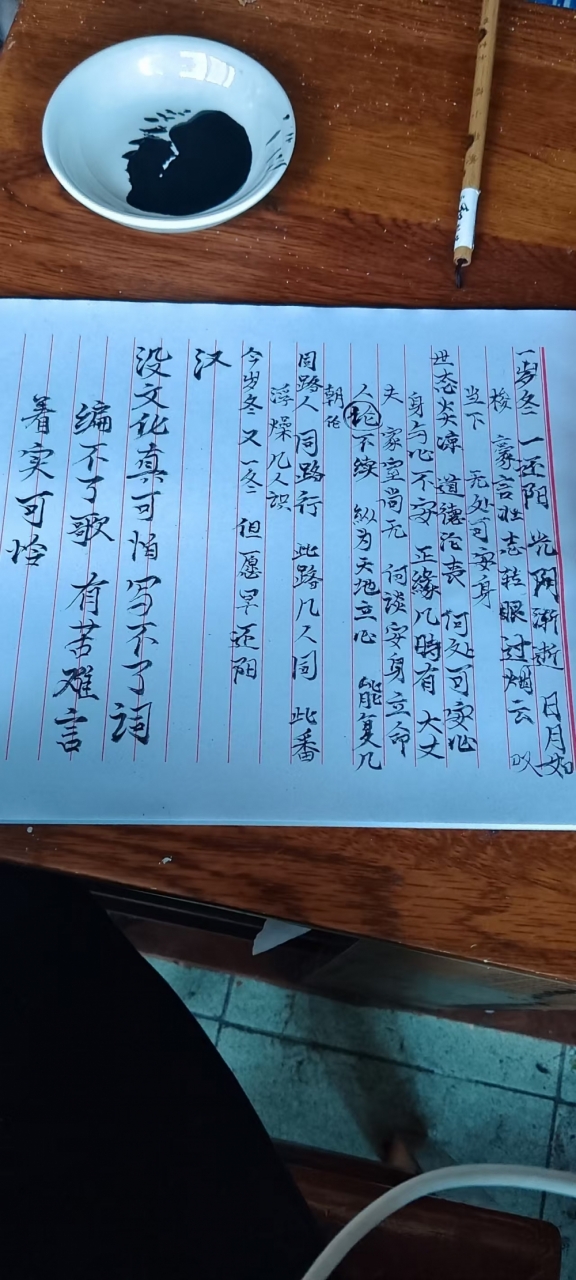 一岁冬 一还阳 光阴渐逝 日月如
梭 豪言壮志转眼过烟云 叹
当下 无处可安身
世态炎凉 道德沦丧 何处可安心
身与心不安 正缘几時有 大丈
夫 家室尚无 何谈安身立命
人论不续 纵为天地立心 能复几
朝
同路人 同路行 此路几人同 此番
浮燥几人识
今岁冬又一冬 但愿早还阳
汉
没文化真可怕 写不了词
编不了歌 有苦难言
着实可怜